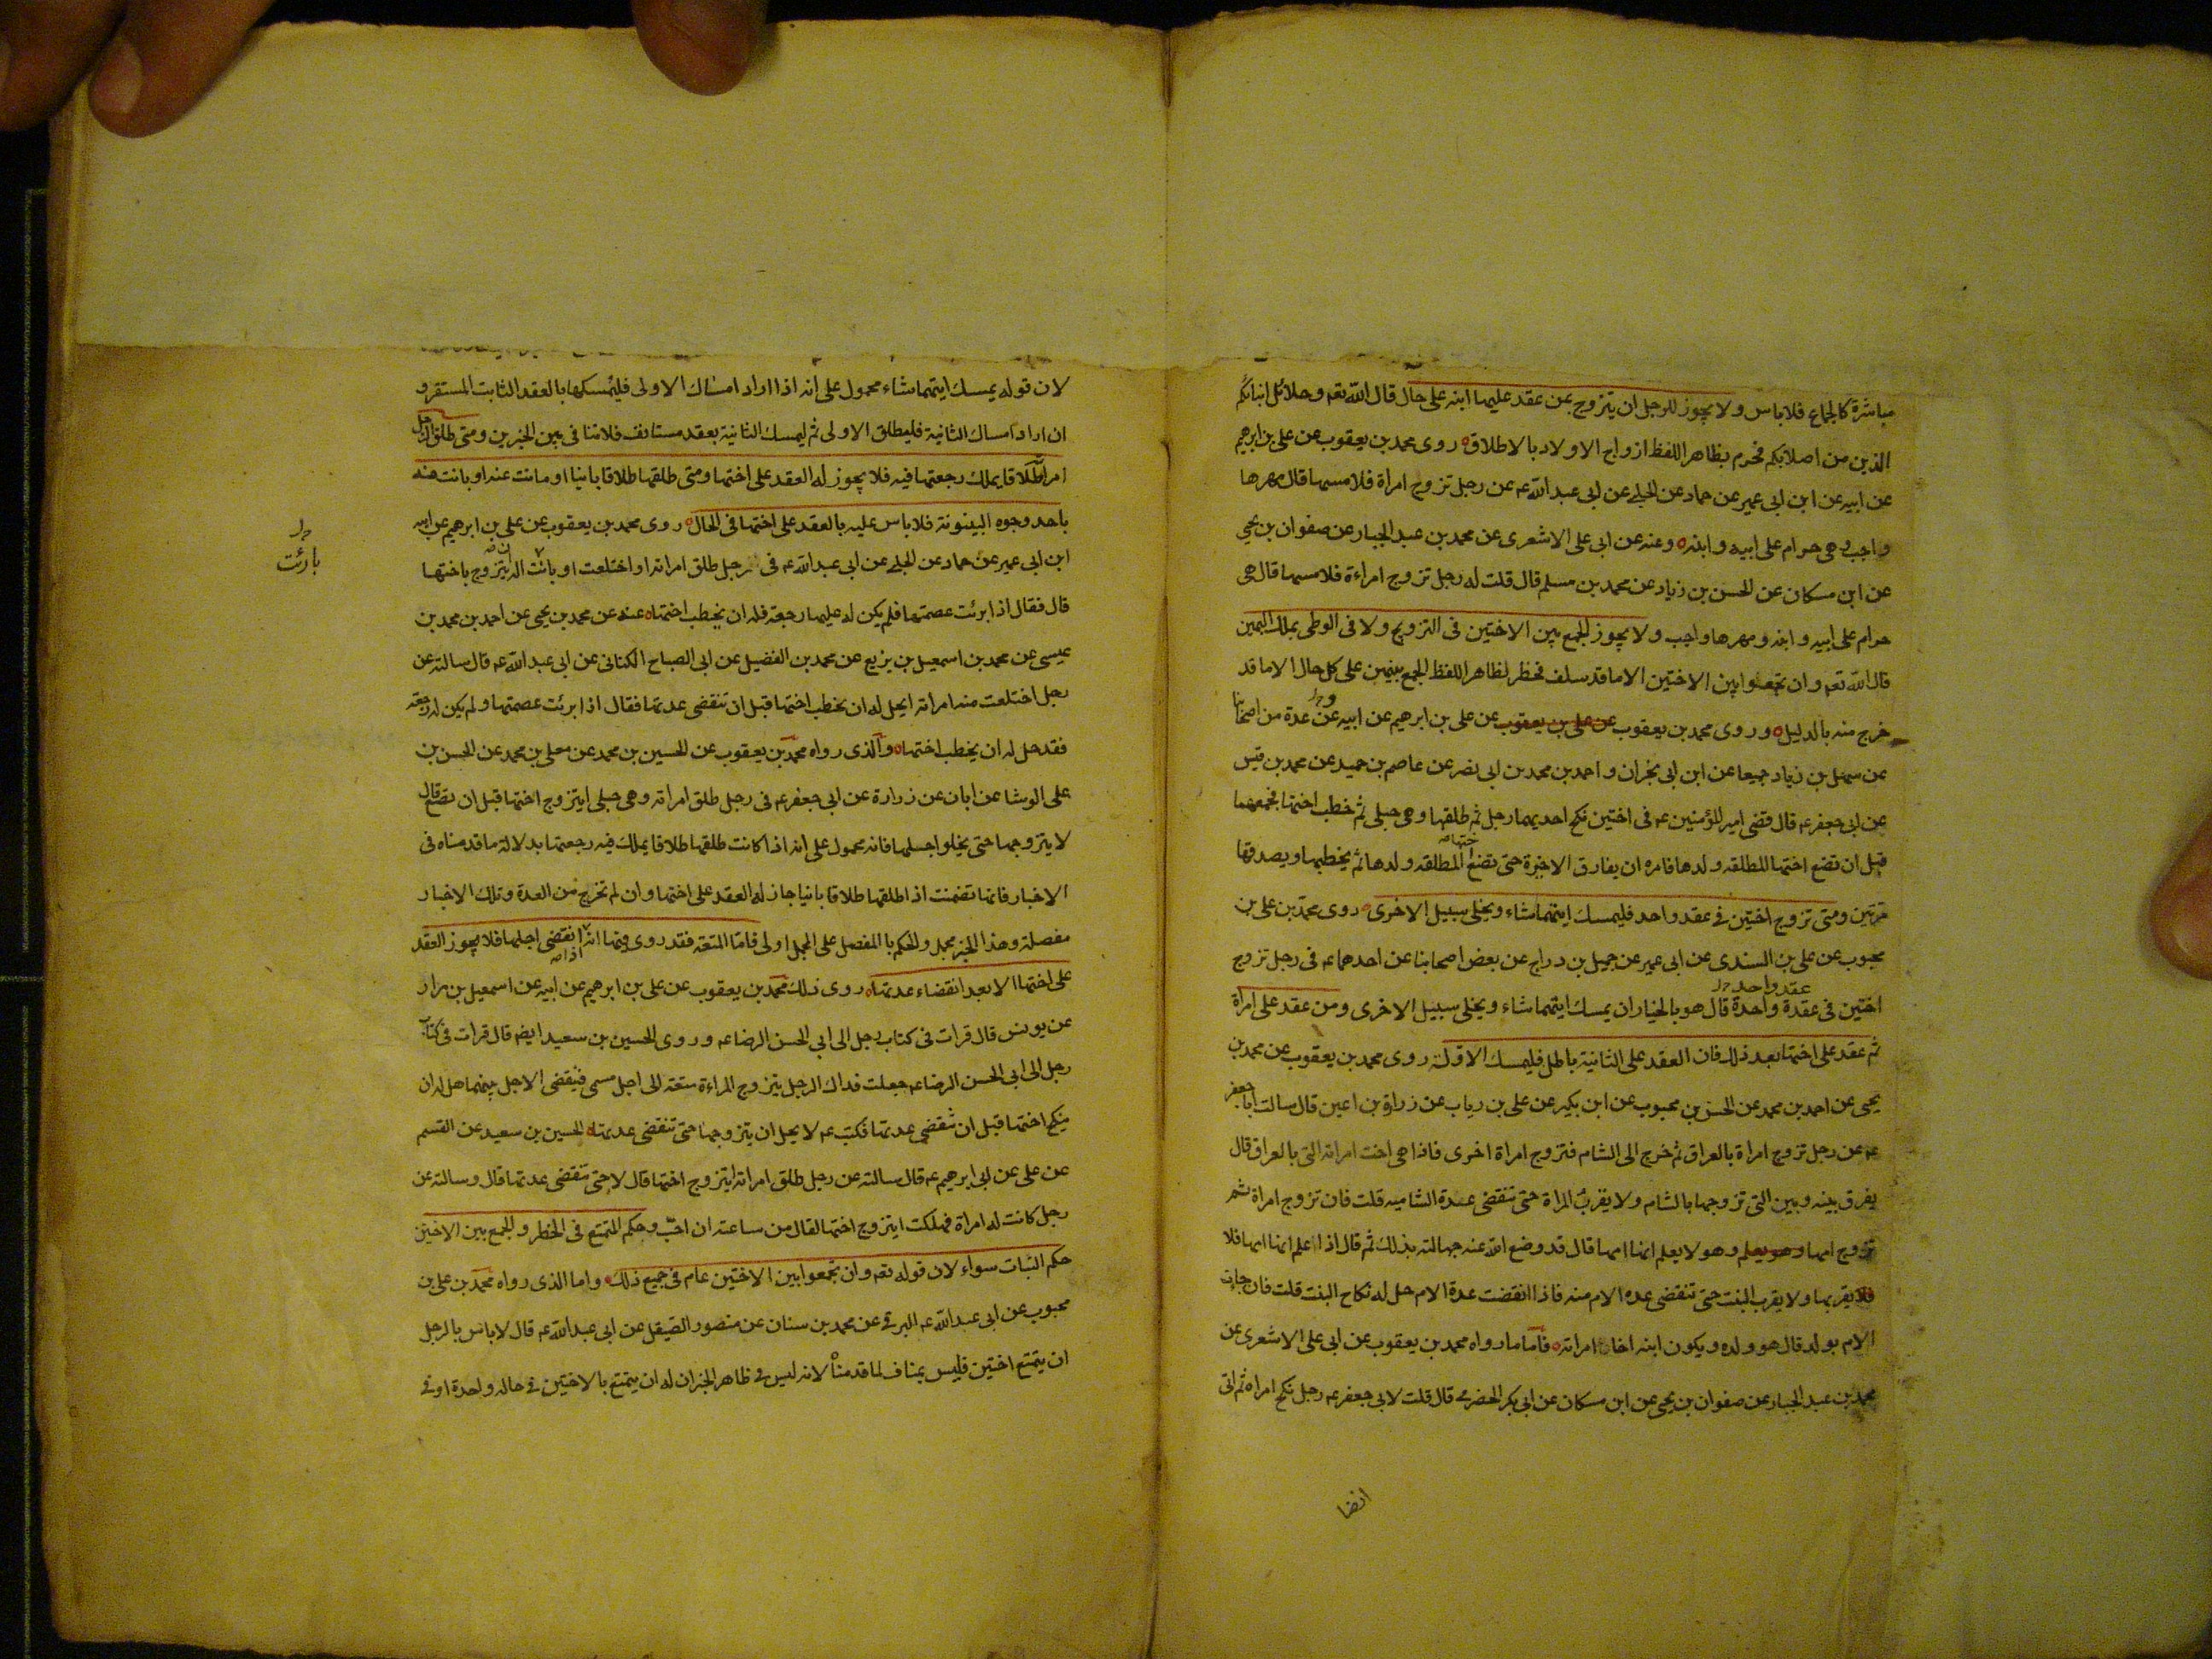 مباشرة كالجماع فلا باس ولا يجوز للرجل ان يتزوج بمن عقد عليها ابنه على حال قال الله تعه وحلائل ابنائكم
الذين من اصلابكم فحرم بظاهر اللفظ ازواج الاولاد بالاطلاق روى محمد بن يعقوب عن على بن ابرهيم
عن ابيه عن ابن ابى عمير عن حماد عن الحلبى عن ابى عبد الله عه عن رجل تزوج امراة فلامسها قال مهرها
واجب وهى حرام على ابيه وابنه وعنه عن ابى على الاشعرى عن محمد بن عبد الجبار عن صفوان بن يحيى
عن ابن مسكان عن الحسن بن زياد عن محمد بن مسلم قال قلت له رجل تزوج امراءة فلامسها قال هى
حرام على ابيه وابنه ومهرها واجب ولا يجوز الجمع بين الاختين فى التزويج ولا فى الوطى بملك اليمين
قال الله تعه وان تجمعوا بين الاختين الا ما قد سلف فحظر لظاهر اللفظ الجمع بينهن على كل حال الا ما قد
خرج منه بالدليل وروى محمد بن يعقوب عن على بن يعقوب عن على بن ابرهيم عن ابيه وعن عدة من اصحابنا
عن سهل بن زياد جميعا عن ابن ابى نجران واحمد بن محمد بن ابى نصر عن عاصم بن حميد عن محمد بن قيس
عن ابى جعفر عه قال قضى امير المؤمنين عه فى اختين نكح احديهما رجل ثم طلقها وهى حبلى ثم خطب اختها فجمعهما
قبل ان تضع اختها المطلقه ولدها فامره ان يفارق الاخيرة حتى تضع اختها المطلقه ولدها ثم يخطبها ويصدقها
مرتين ومتى تزوج اختين فى عقد واحد فليمسك ايتهما شاء ويخلى سبيل الاخرى روى محمد بن على بن
محبوب عن على بن السندى عن ابى عمير عن جميل بن دراج عن بعض اصحابنا عن احدهما عه فى رجل تزوج
عقد واحد
اختين فى عقدة واحدة قال هو بالخيار ان يمسك ايتهما شاء ويخلى سبيل الاخرى ومن عقد على امراة
ثم عقد على اختها بعد ذلك فان العقد على الثانية باطل فليمسك الاولة روى محمد بن يعقوب عن محمد بن
يحيى عن احمد بن محمد عن الحسن بن محبوب عن ابن بكير عن على بن رياب عن زرارة بن اعين قال سالت ابا جعفر
عه عن رجل تزوج امراة بالعراق ثم خرج الى الشام فتزوج امراة اخرى فاذا هى اخت امراته التى بالعراق قال
يفرق بينه وبين التى تزوجها بالشام ولا يقرب المراة حتى تنقضى عدة الشاميه قلت فان تزوج امراة ثم
تزوج امها وهو يعلم وهو لا يعلم انها امها قال قد وضع الله عنه جهالته بذلك ثم قال اذا علم انها امها فلا
يقربها ولا يقرب البنت حتى تنقضى عده الام منه فاذا انقضت عدة الام حل له نكاح البنت قلت فان جاءت
الام بولد قال هو ولده ويكون ابنه اخا امراته فاما ما رواه محمد بن يعقوب عن ابى على الاشعرى عن
محمد بن عبد الجبار عن صفوان بن يحيى عن ابن مسكان عن ابى بكر الحضرمى قال قلت لابى جعفر عه رجل نكح امراه ثم اتى
لان قوله يمسك ايتهما شاء محمول على انه اذا اراد امساك الاولى فليمسكها بالعقد الثابت المستقر و
ان اراد امساك الثانية فليطلق الاولى ثم ليمسك الثانية بعقد مستانف فلا تنافى بين الخبرين ومتى طلق الرجل
امراته طلاقا يملك رجعتها فيه فلا يجوز له العقد على اختها ومتى طلقها طلاقا باينا او ماتت عنه او بانت منه
باحد وجوه البينونة فلا باس عليه بالعقد على اختها فى الحال روى محمد بن يعقوب عن على بن ابرهيم عن ابيه
ابن ابى عمير عن حماد عن الحلبى عن ابى عبد الله عه فى رجل طلق امراته او اختلعت او بانت اله ان يتزوج باختها
بارئت
قال فقال اذا برئت عصمتها فلم يكن له عليها رجعة فله ان يخطب اختها عنه عن محمد بن يحيى عن احمد بن محمد بن
عيسى عن محمد بن اسمعيل بن بزيع عن محمد بن الفضيل عن ابى الصباح الكنانى عن ابى عبد الله عه قال سالته عن
رجل اختلعت منه امراته ايحل له ان يخطب اختها قبل ان تنقضى عدتها فقال اذا برئت عصمتها ولم يكن له رجعة
فقد حل له ان يخطب اختها والذى رواه محمد بن يعقوب عن الحسين بن محمد عن معلى بن محمد عن الحسن بن
على الوشا عن ابان عن زرارة عن ابى جعفر عه فى رجل طلق امراته وهى حبلى ايتزوج اختها قبل ان تضع قال
لا يتزوجها حتى يخلو اجلها فانه محمول على انه اذا كانت طلقها طلاقا يملك فيه رجعتها بدلالة ما قدمناه فى
الاخبار فانها تضمنت اذا طلقها طلاقا باينا جاز له العقد على اختها وان لم تخرج من العدة وتلك الاخبار
مفصلة وهذا الخبر مجمل والحكم بالمفصل على المجمل اولى فاما المتعة فقد روى فيها انه اذا انقضى اجلها فلا يجوز العقد
على اختها الا بعد انقضاء عدتها روى ذلك محمد بن يعقوب عن على بن ابرهيم عن ابيه عن اسمعيل بن مرار
عن يونس قال قرات فى كتاب رجل الى ابى الحسن الرضا عه وروى الحسين بن سعيد ايضه قال قرات فى كتاب
رجل الى ابى الحسن الرضا عه جعلت فداك الرجل يتزوج المراءة متعة الى اجل مسمى فينقضى الاجل بينهما هل له ان
ينكح اختها قبل ان تنقضى عدتها فكتب عه لا يحل ان يتزوجها حتى تنقضى عدتها الحسين بن سعيد عن القسم
عن على عن ابى ابرهيم عه قال سالته عن رجل طلق امراته ايتزوج اختها قال لا حتى تنقضى عدتها قال وسالته عن
رجل كانت له امراة فهلكت ايتزوج اختها فقال من ساعته ان احب وحكم المتمتع فى الحظر والجمع بين الاختين
حكم الثبات سواء لان قوله تعه وان تجمعوا بين الاختين عام فى جميع ذلك واما الذى رواه محمد بن على بن
محبوب عن ابى عبد الله عه البرقى عن محمد بن سنان عن منصور الصيقل عن ابى عبد الله عه قال لا باس بالرجل
ان يتمتع اختين فليس بمناف لما قدمناه لانه ليس فى ظاهر الخبر ان له ان يتمتع بالاختين فى حالة واحدة او فى